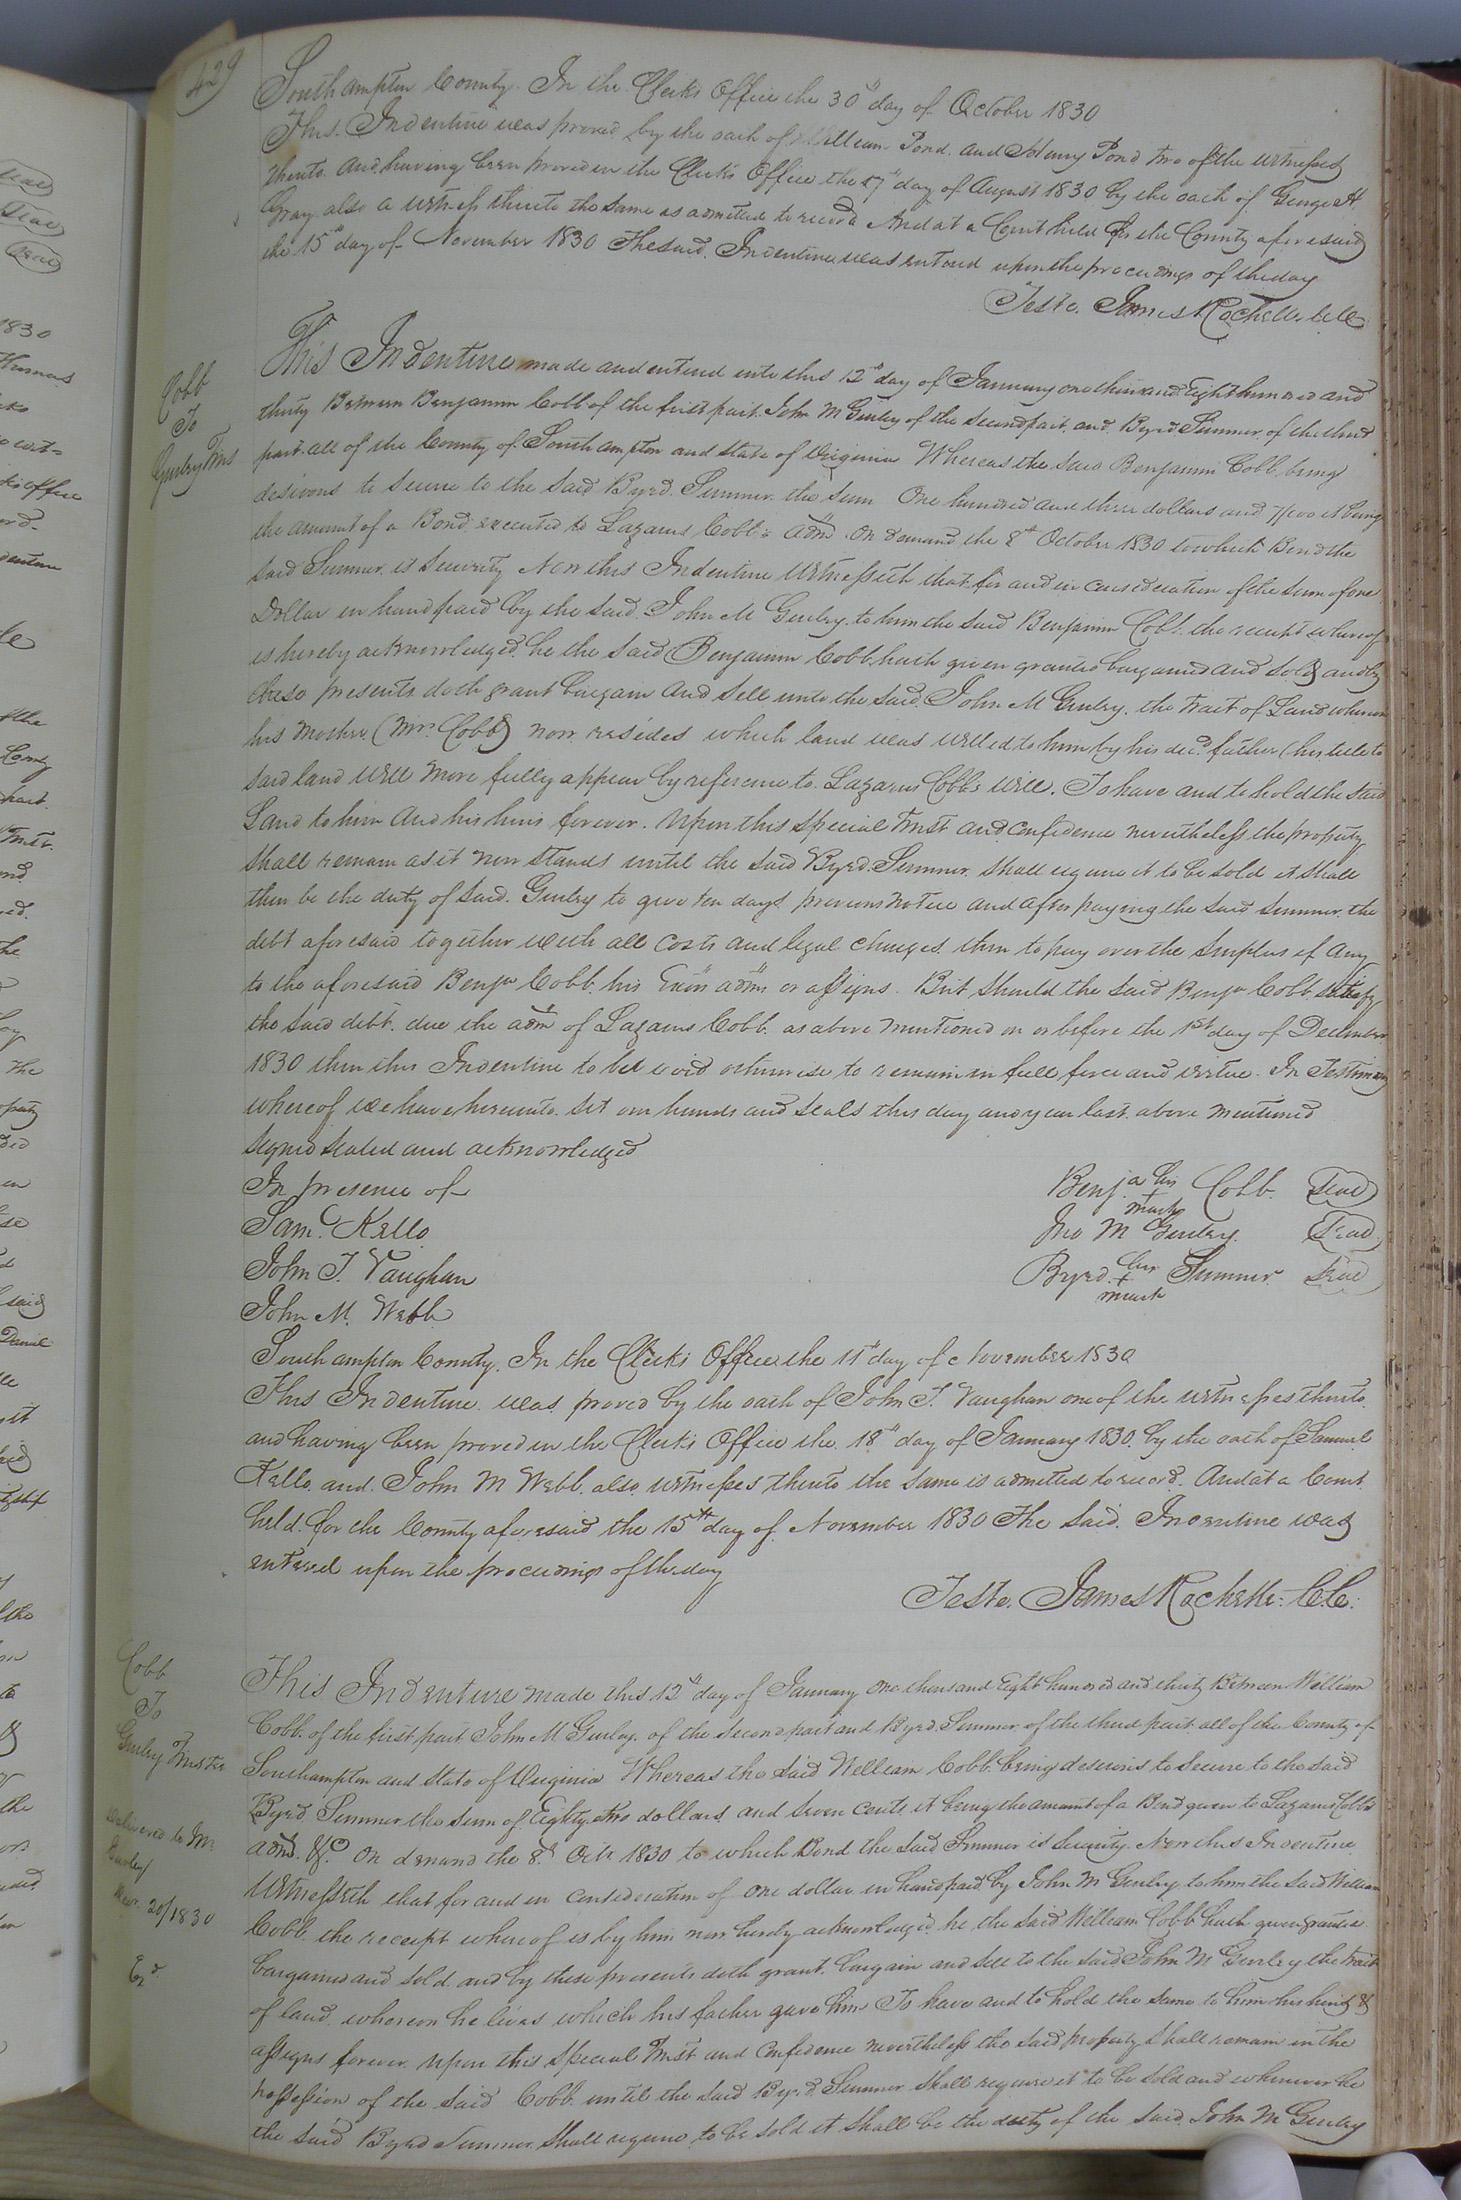 429
Southampton County. In the Clerks Office the 30th day of October 1830
This Indenture was proved by the oath of William Pond and Henry Pond two of the witnesses
thereto and having been proved in the Clerks Office the 17th day of August 1830 by the oath of George H
Gray also a witness thereto the same is admitted to record And at a Court held for the County aforesaid
the 15th day of November 1830 The said Indenture was entered upon the proceedings of the day
Teste. James Rochelle CC
Cobb
To
Gurley Trus
This Indenture made and entered into this 12th day of January one thousand Eight hundred and
thirty Between Benjamin Cobb of the first part John M Gurley of the second part, and Byrd Sumner of the third
part all of the County of Southampton and State of Virginia Whereas the said Benjamin Cobb being
desirous to secure to the said Byrd Sumner the sum One hundred and three dollars and 7/100 it being
the amount of a Bond executed to Lazarus Cobb's admr on demand the 8th October 1830 to which Bond the
said Sumner is Security Now this Indenture Witnesseth that for and in consideration of the sum of one
Dollar in hand paid by the said John M Gurley to him the said Benjamin Cobb the receipt whereof
is hereby acknowledged he the said Benjamin Cobb hath given granted bargained and sold and by
these presents doth grant bargain and sell unto the said John M Gurley the tract of Land whereon
his mother (Mrs Cobb) now resides which land was willed to him by his decd father (his title to
said land will more fully appear by reference to Lazarus Cobbs will. To have and to hold the said
Land to him and his heirs forever. Upon this special trust and confidence nevertheless the property
shall remain as it now stands until the said Byrd Sumner shall require it to be sold it shall
then be the duty of said Gurley to give ten days previous notice and after paying the said Sumner the
debt aforesaid together with all costs and legal charges then to pay over the surplus if any
to the aforesaid Benja Cobb his Exors admrs or assigns. But should the said Benja Cobb satisfy
the said debt due the adm of Lazarus Cobb as above mentioned on or before the 1st day of December
1830 then this Indenture to be void otherwise to remain in full force and virtue. In Testimony
whereof we have hereunto set our hands and seals this day and year last above mentioned
Signed Sealed and acknowledged
In presence of
Saml Kello
John T. Vaughan
John M. Webb
Benja his + mark Cobb Seal
Jno M Gurley Seal
Byrd his + mark Sumner Seal
Southampton County. In the Clerks Office the 11th day of November 1830
This Indenture was proved by the oath of John T. Vaughan one of the witnesses thereto
and having been proved in the Clerks Office the 18th day of January 1830 by the oath of Samuel
Kello and John M Webb also witnesses thereto the same is admitted to record. And at a Court
held for the County aforesaid the 15th day of November 1830 The said Indenture was
entered upon the proceedings of the day
Teste. James Rochelle C.C.
Cobb
To
Gurley Trustee
Delivered to Mr
Gurley
20/1830
This Indenture made this 12th day of January One thousand Eight hundred and thirty Between William
Cobb of the first part John M Gurley of the second part and Byrd Sumner of the third part all of the County of
Southampton and State of Virginia Whereas the said William Cobb being desirous to secure to the said
Byrd Sumner the sum of Eighty two dollars and seven cents it being the amount of a Bond given to Lazarus Cobbs
admr &c. on demand the 8th Octr 1830 to which Bond the said Sumner is Security. Now this Indenture
Witnesseth that for and in consideration of one dollar in hand paid by John M Gurley to him the said William
Cobb the receipt whereof is by him now hereby acknowledged he the said William Cobb hath given granted
bargained and sold and by these presents doth grant bargain and sell to the said John M Gurley the tract
of land whereon he lives which his father gave him To have and to hold the same to him his heirs &
assigns forever Upon this special Trust and confidence nevertheless the said property shall remain in the
possession of the said Cobb until the said Byrd Sumner shall require it to be sold and whenever he
the said Byrd Sumner shall require to be sold it shall be the duty of the said John M Gurley